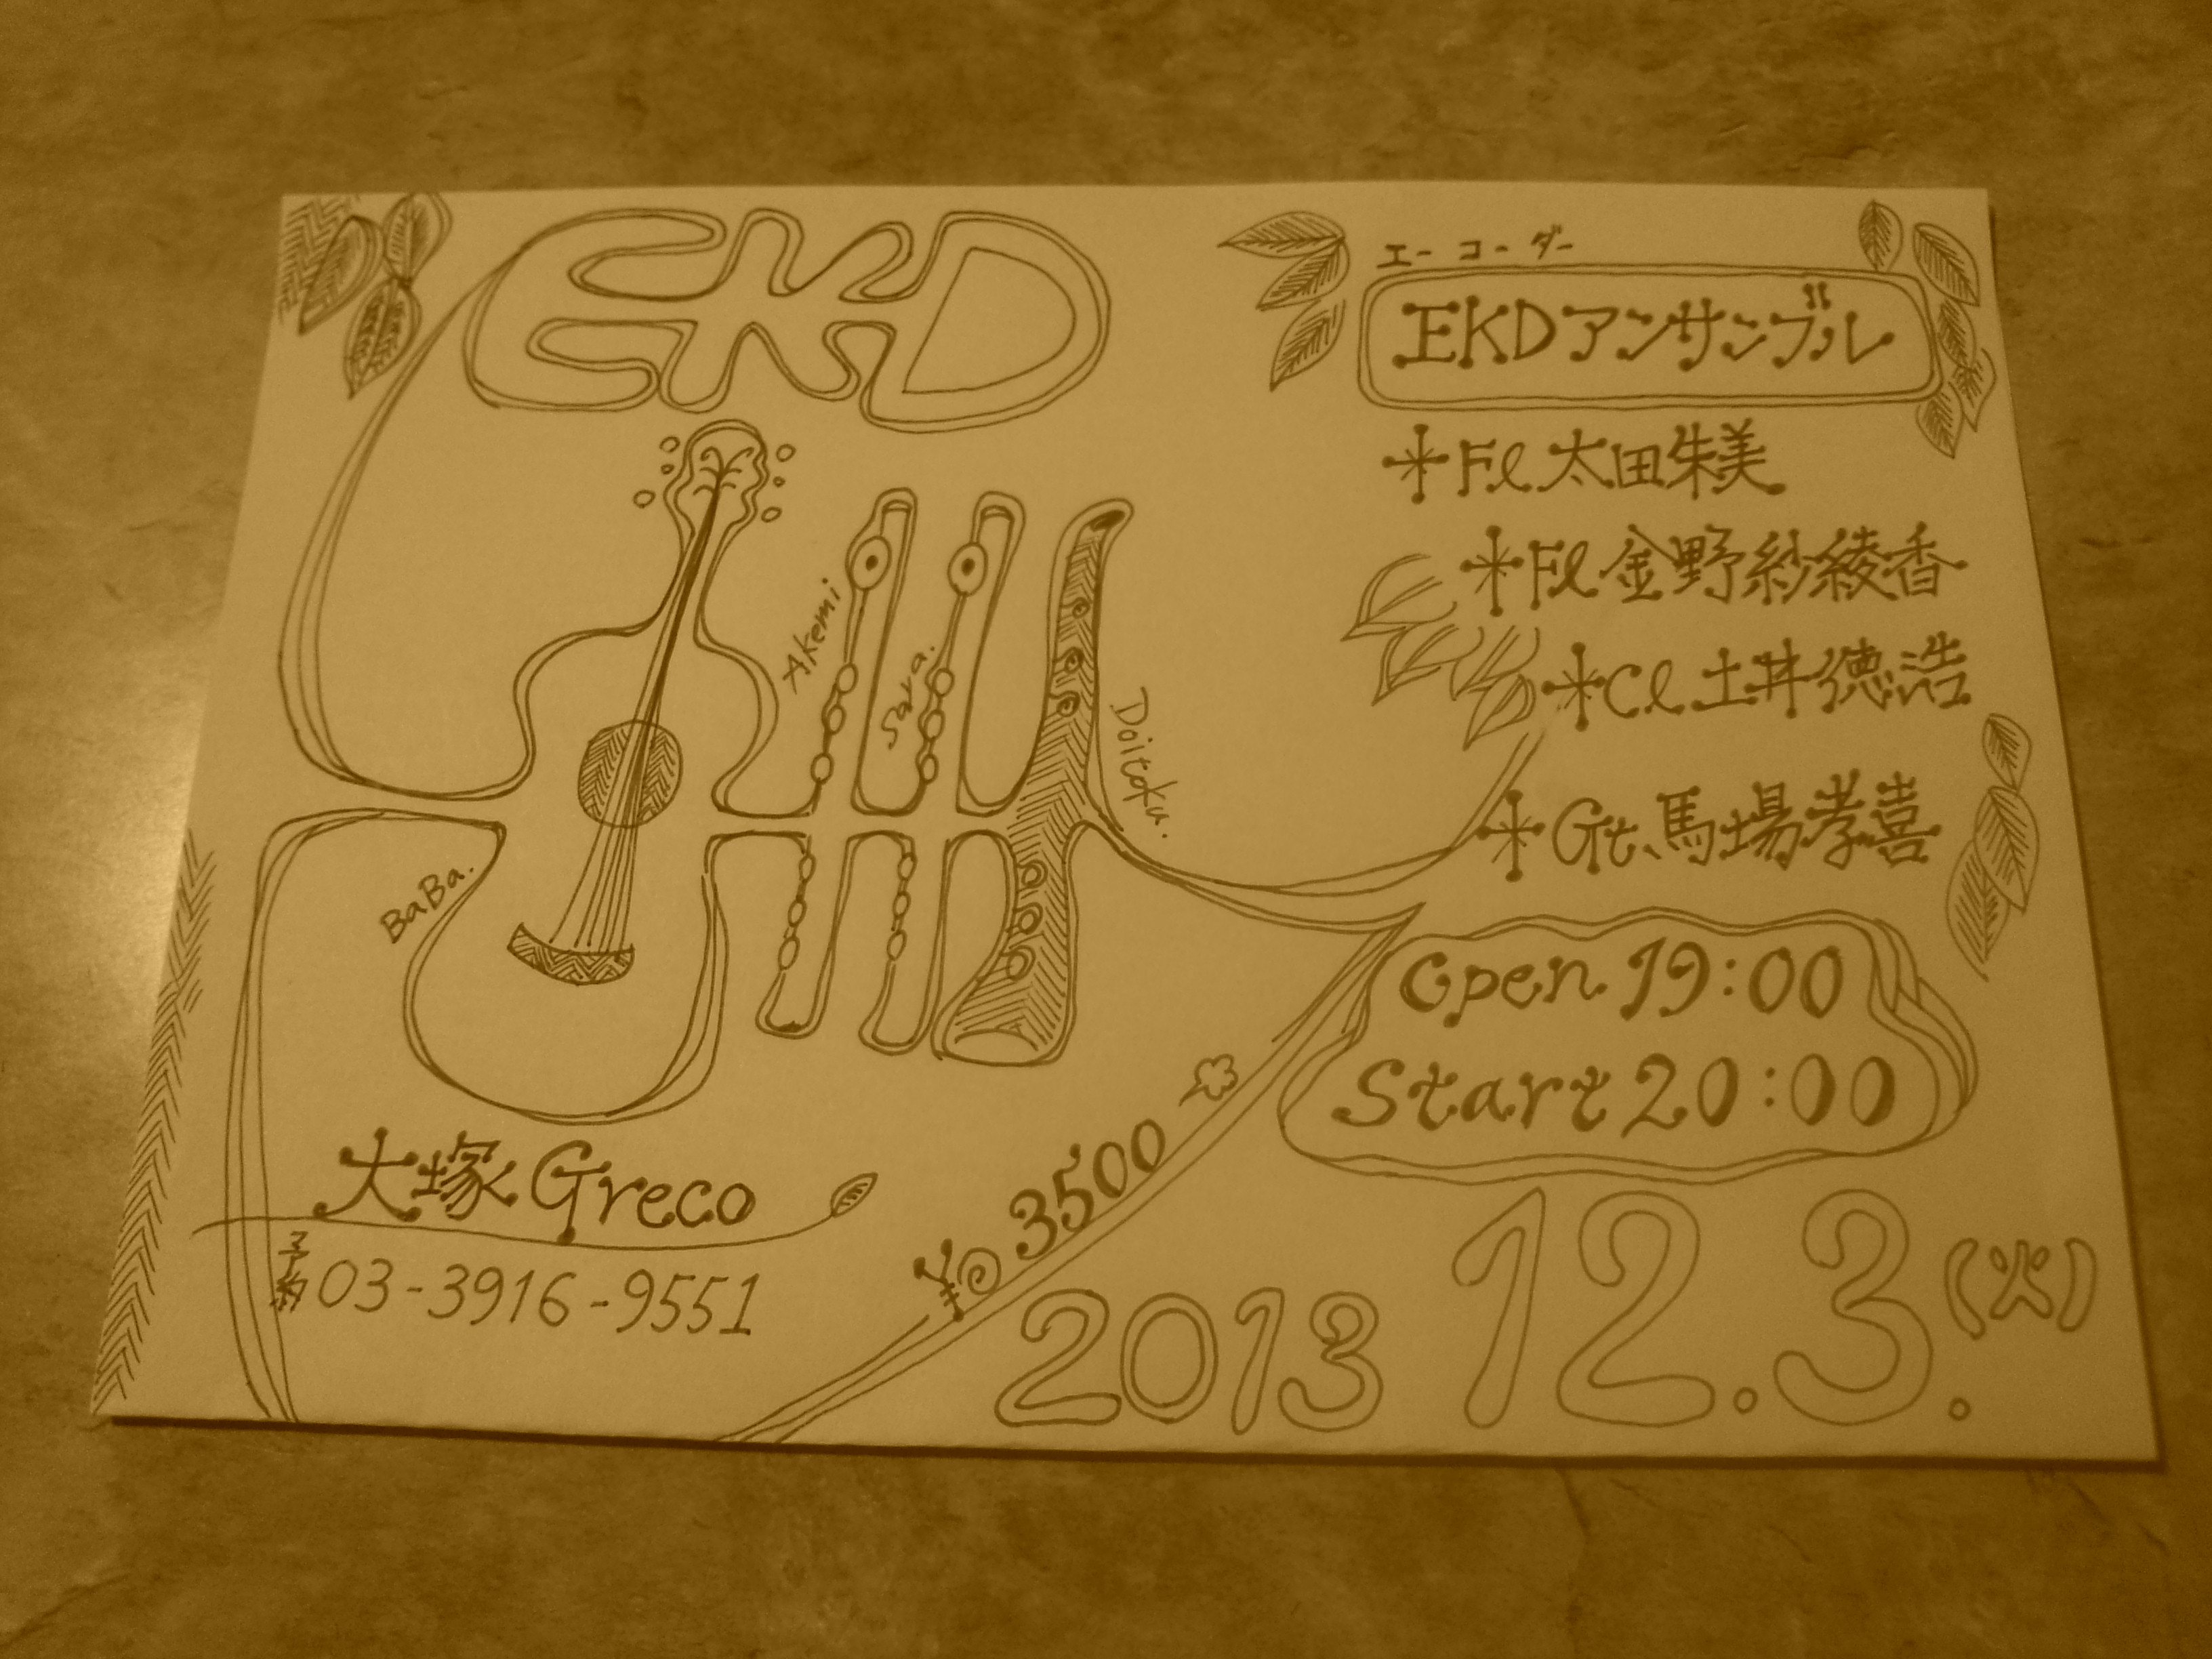 EKD
Akemi
Sara.
Doitoku.
BaBa.
大塚 Greco
予約 03-3916-9551
¥ 3500
エーコーダー
EKDアンサンブル
*Fl 太田朱美
*Fl 金野紗綾香
*Cl 土井徳浩
*Gt. 馬場孝喜
Open 19:00
Start 20:00
2013 12.3.(火)